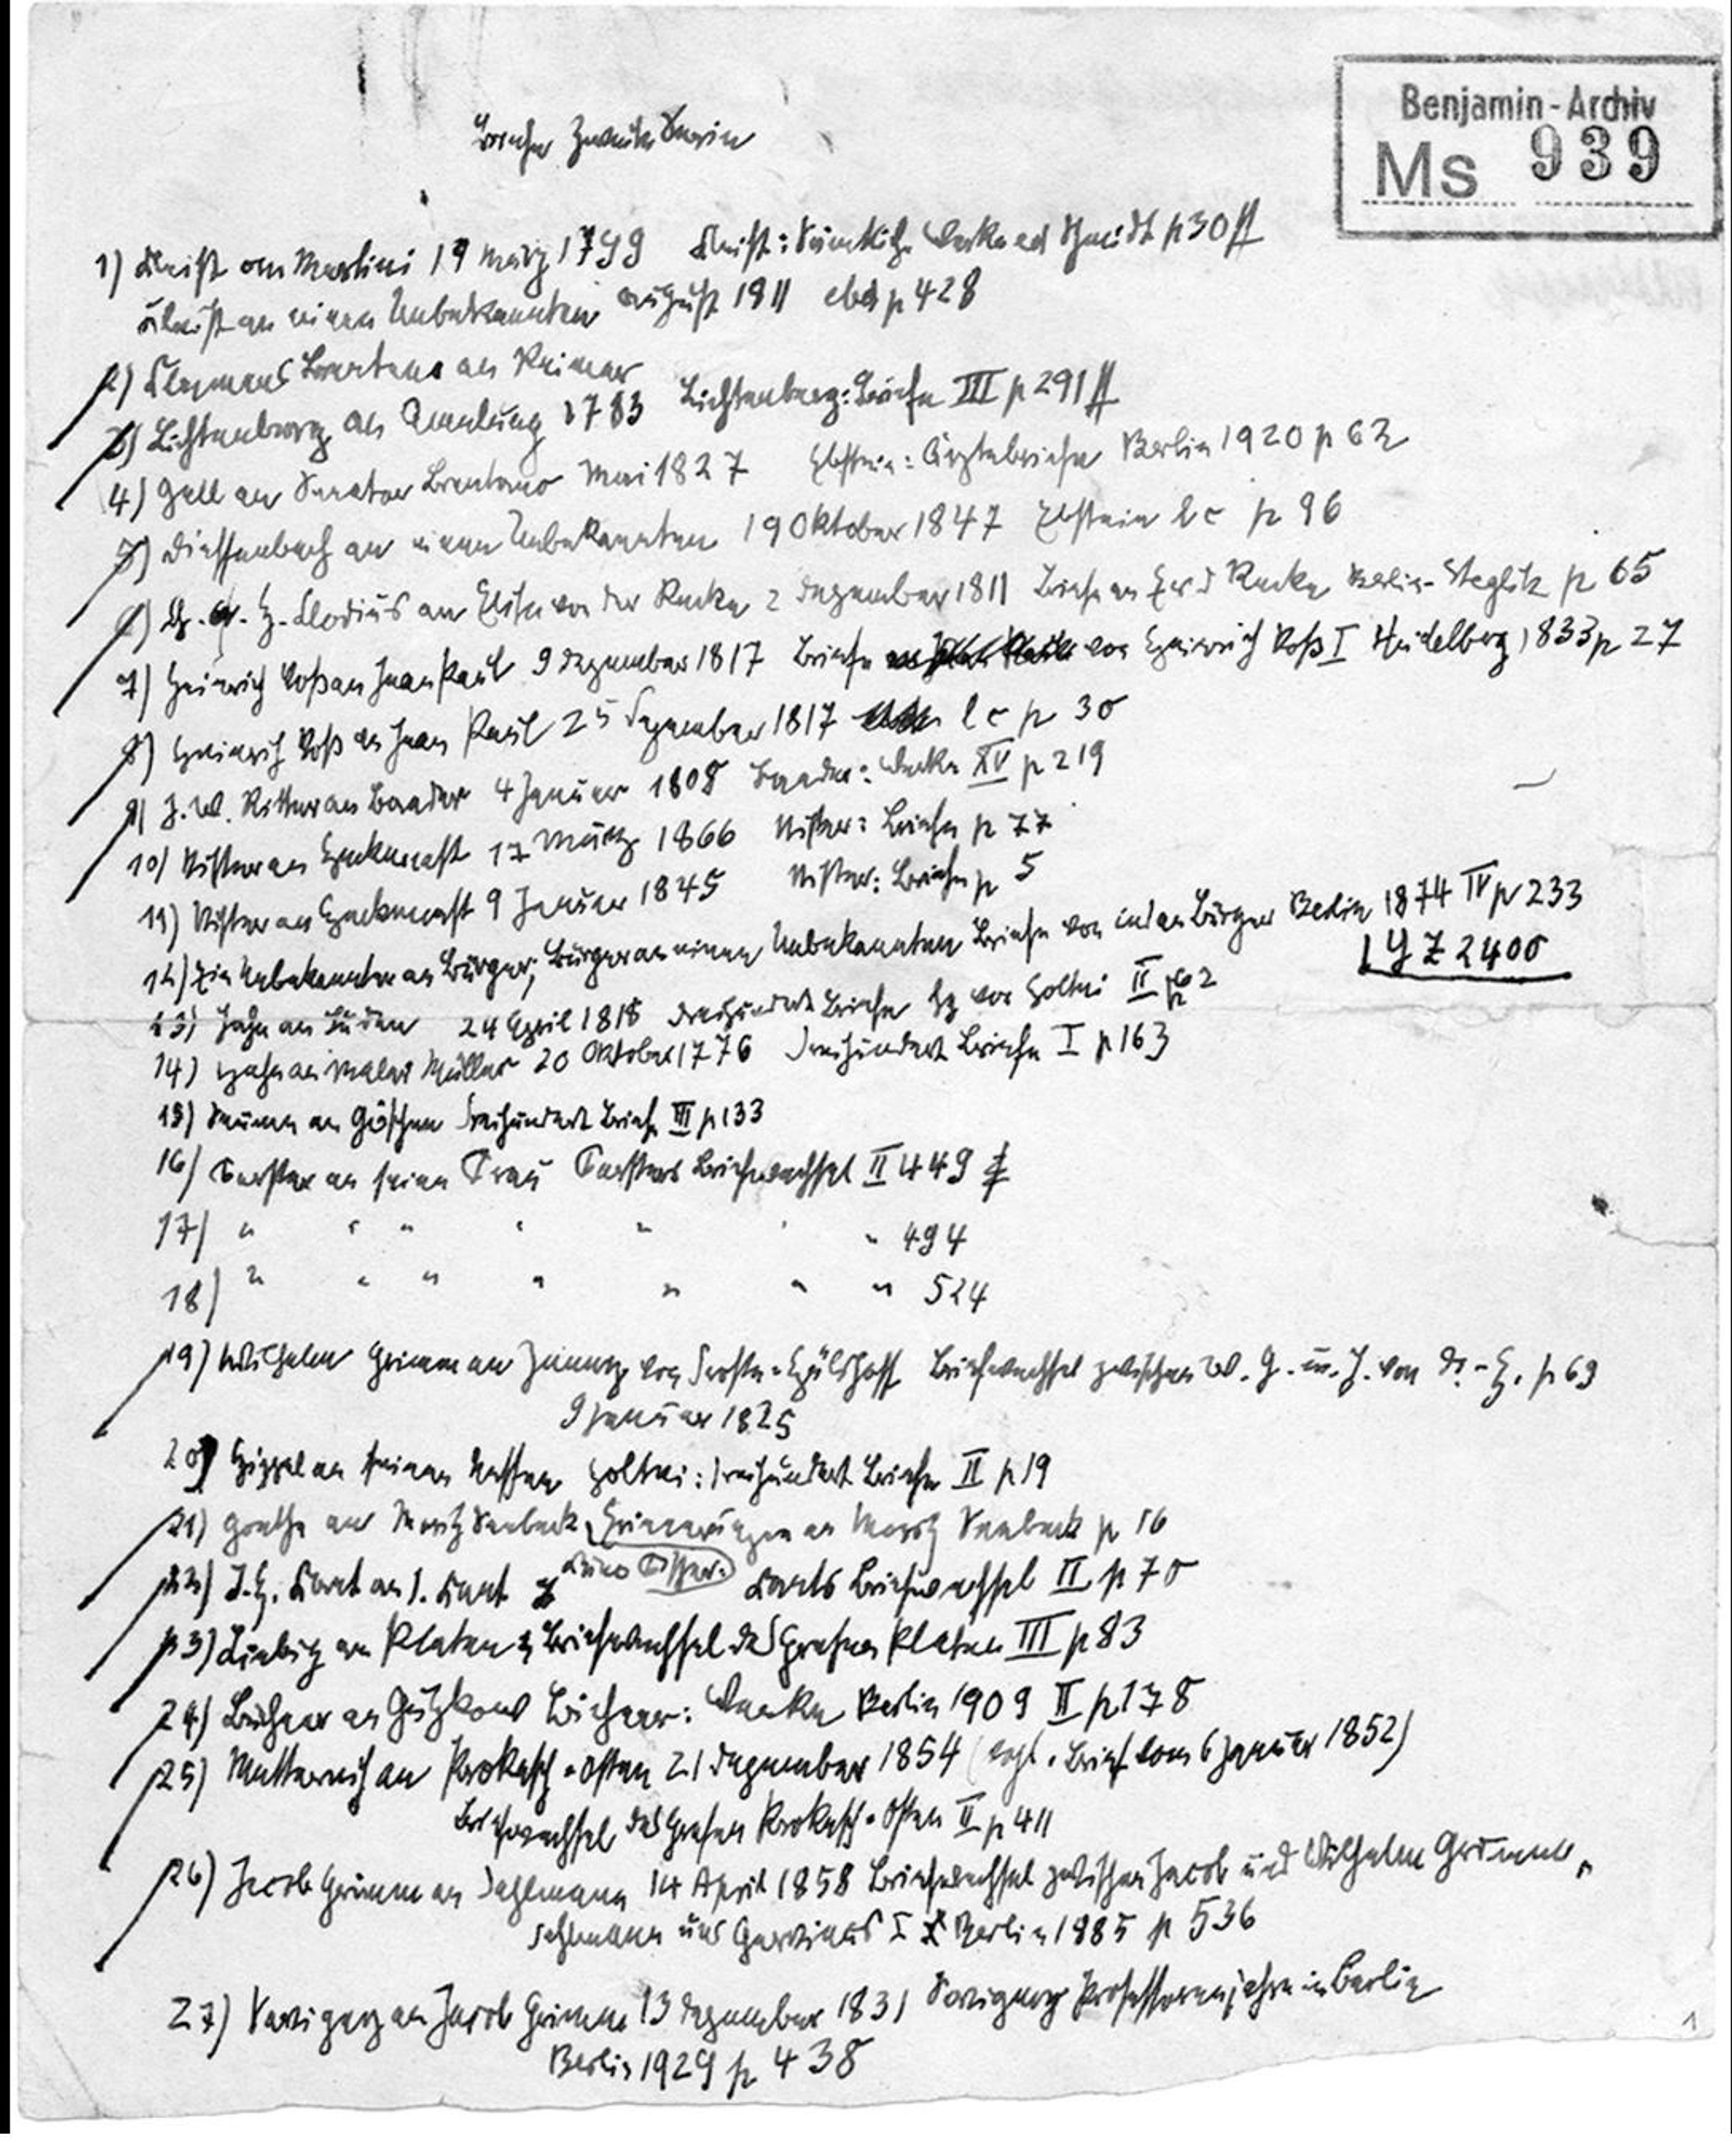 Briefe Zweite Serie
Benjamin-Archiv
Ms 939
1) Kleist an Martini 19 März 1799 Kleist: Sämtliche Werke ed Schmidt p 30 ff
Kleist an einen Unbekannten August 1811 ebd p 428
2) Clemens Brentano an Reimer
3) Lichtenberg an Amelung 1783 Lichtenberg: Briefe III p 291 ff
4) Gall an Senator Brentano Mai 1827 Ebstein: Ärztebriefe Berlin 1920 p 62
5) Dieffenbach an einen Unbekannten 19 Oktober 1847 Ebstein l c p 96
6) Ch. A. H. Clodius an Elisa von der Recke 2 Dezember 1811 Briefe an E v d Recke Berlin-Steglitz p 65
7) Heinrich Voß an Jean Paul 9 Dezember 1817 Briefe von Heinrich Voß I Heidelberg 1833 p 27
8) Heinrich Voß an Jean Paul 25 Dezember 1817 l c p 30
9) J. W. Ritter an Baader 4 Januar 1808 Baader: Werke XV p 219
10) an 17 März 1866 Briefe p 77
11) an 9 Januar 1845 Briefe p 5
12) Ein Unbekannter an Bürger; Bürger an einen Unbekannten Briefe von und an Bürger Berlin 1874 IV p 233
| Y Z 2400
13) Jahn an 24 April 1818 Dreihundert Briefe hg von Holtei II p 62
14) Hahn an Maler Müller 20 Oktober 1776 Dreihundert Briefe I p 163
15) Seume an Göschen Dreihundert Briefe III p 133
16) Forster an seine Frau Forsters Briefwechsel II 449
17) " " " " " " " 494
18) " " " " " " " 524
19) Wilhelm Grimm an Jenny von Droste-Hülshoff Briefwechsel zwischen W. G. u. J. von Dr.-H. p 69
9 Januar 1825
20) Hippel an seinen Neffen Holtei: Dreihundert Briefe II p 19
21) Goethe an Moritz Seebeck Erinnerungen an Moritz Seebeck p 16
22) J. H. Kant an I. Kant Kuno Fischer: Kants Briefwechsel II p 70
23) Liebig an Platen Briefwechsel des Grafen Platen III p 83
24) Büchner an Gutzkow Büchner: Werke Berlin 1909 II p 178
25) Metternich an Prokesch-Osten 21 Dezember 1854 (vgl. Brief vom 6 Januar 1852)
Briefwechsel des Grafen Prokesch-Osten II p 411
26) Jacob Grimm an Dahlmann 14 April 1858 Briefwechsel zwischen Jacob und Wilhelm Grimm,
Dahlmann und Gervinus I Berlin 1885 p 536
27) Savigny an Jacob Grimm 13 Dezember 1831 Savigny Professorenjahre in Berlin
Berlin 1929 p 438
1